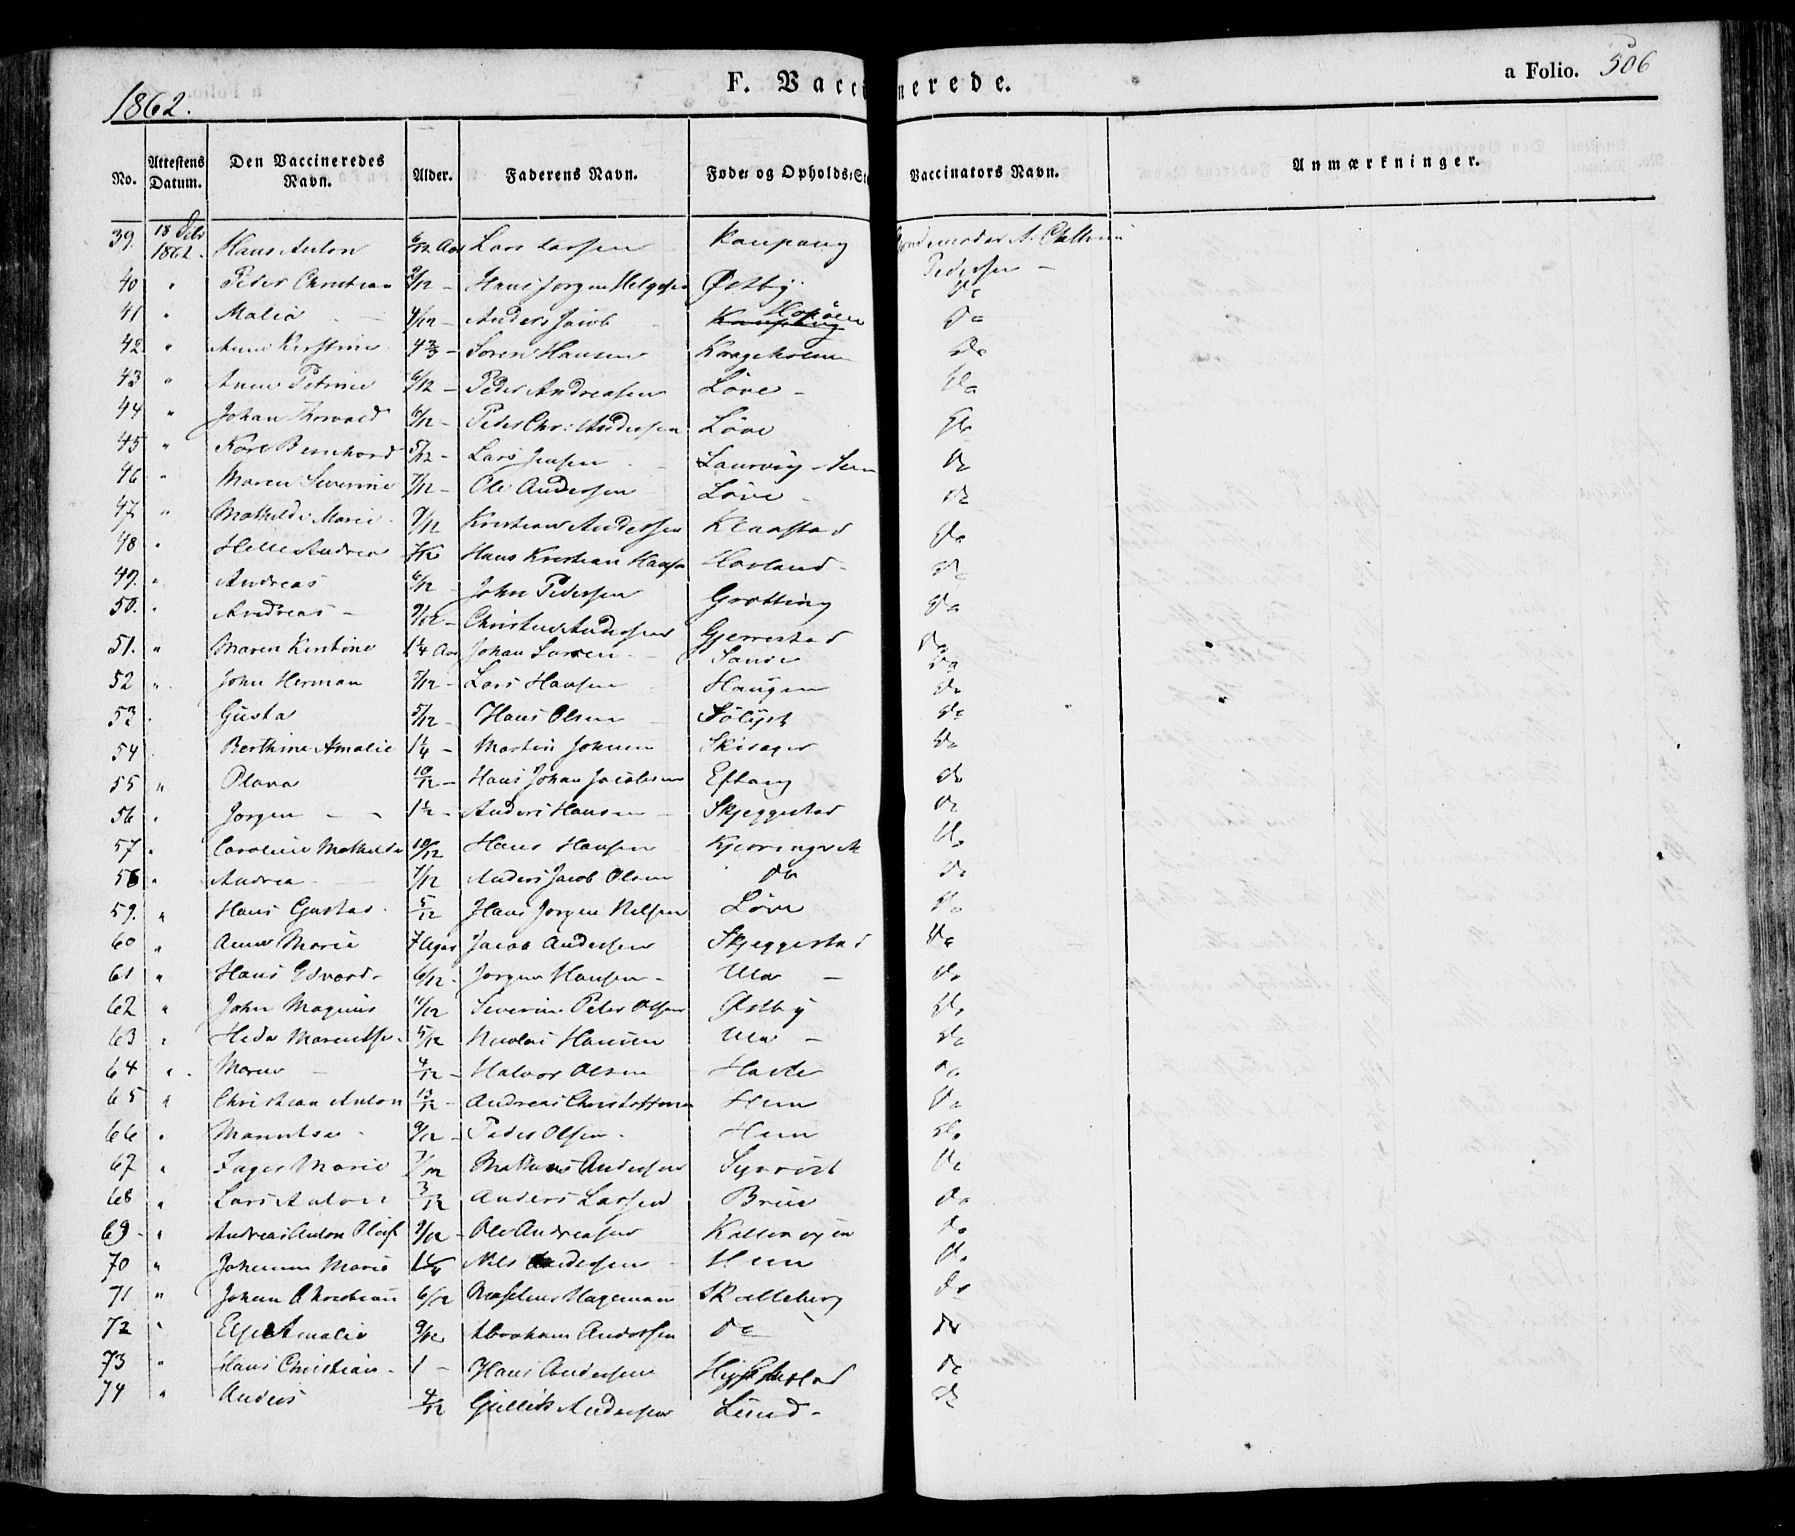 1862.
F. Vaccinerede.
a Folio. 306
No. Attestens Datum. Den Vaccineredes Navn. Alder. Faderens Navn. Føde- og Opholds-St Vaccinators Navn. Anmærkninger.
39. 18 Febr 1862. Hans Anton 6/12 Aar Lars Larsen Kaupang A.
Pedersen –
40 " Peder Christian 9/12 – Hans Jørgen Helgesen Østby. do
41 " Malia 4/12 – Anders Jacob do
42 " Anne Kirstine 4 2/3 – Søren Hansen Krageholmen do
43 " Anne Petrine 6/12 – Peder Andreasen Løve – do
44 " Johan Thorvald 6/12 – Peder Chr: Andersen Løve do
45 " Karl Bernhard 5/12 – Lars Jensen Laurvig – do
46 " Maren Severine 7/12 – Ole Andersen Løve – do
47 " Mathilde Marie 9/12 Kristian Andersen Klaastad do
48 " Helle Andrea 7/12 Hans Kristian Hansen Havland – do
49. " Andreas 6/12 – John Pedersen Grøtting do
50. " Andreas – 9/12 – Christian Andersen Gjerrestad do
51. " Maren Kirstine 1 1/4 Aar Johan Larsen – Sande do
52 " John Herman 7/12 – Lars Hansen Haugen do
53 " Gusta 5/12 – Hans Olsen Sølyst do
54 Berthine Amalie 1 1/4 – Martin Johnsen Skisager do
55 " Olava 10/12 – Hans Johan Jacobsen Eftang do
56 " Jørgen – – 1 1/2 – Anders Hansen – Skjeggestad do
57 " Caroline Mathilde 10/12 Hans Hansen Kjerringvik do
58 " Andrea – 7/12 Anders Jacob Olsen do do
59. " Hans Gustav 5/12 Hans Jørgen Nilsen Løve do
60 " Anne Marie 7 Uger Jacob Andersen Skjeggestad do
61 " Hans Edvard – 6/12 – Jørgen Hansen – Ula – do
62 " John Magnus 11/12 Severin Peter Olsen Østby do
63 " Heda 5/12 Nicolai Hansen Ula – do
64 " Maren – 4/12 – Halvor Olsen Havte do
65 " Christian Anton 13/12 – Andreas Christoffersen Hem do
66 " 9/12 – Peder Olsen – Hem do
67 " Inger Marie 7/12 Mathias Andersen Syrrist do
68 " Lars Anton 3/12 Anders Larsen Brua do
69 – " Andreas Anton Oluf 9/12 – Ole Andreasen do
70 " Johanne Marie 1 1/4 Nils Andersen – Hem do
71 " Johan Christian 6/12 Hageman Skalleberg do
72 " Else Amalie 9/12 Abraham Andersen do do
73 " Hans Christian – 1 – Hans Andersen do
74 " Anders 4/12 Gullik Andersen Lund – do